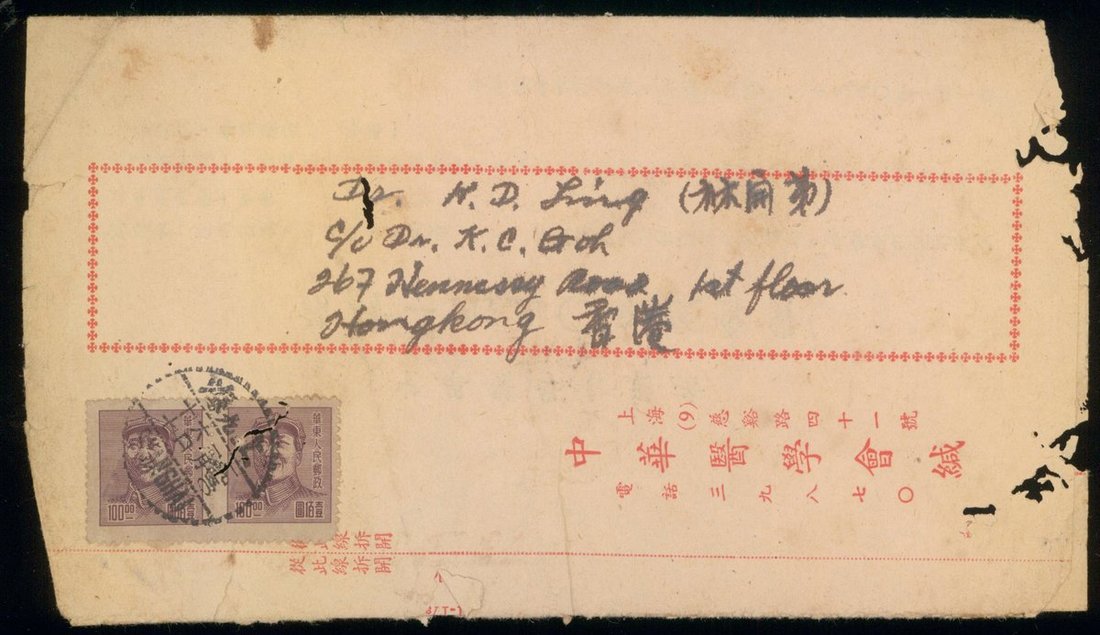 Dr. H. D. Ling (林
c/o Dr. K. C. Goh
267 Hennessy Road 1st floor
Hongkong 香港
上海(9)慈谿路四十一號
中華醫學會緘
電話三九八七〇
華東人民郵政
100.00
壹佰圓
華東人民郵政
100.00
壹佰圓
從此線拆開
從此線拆開